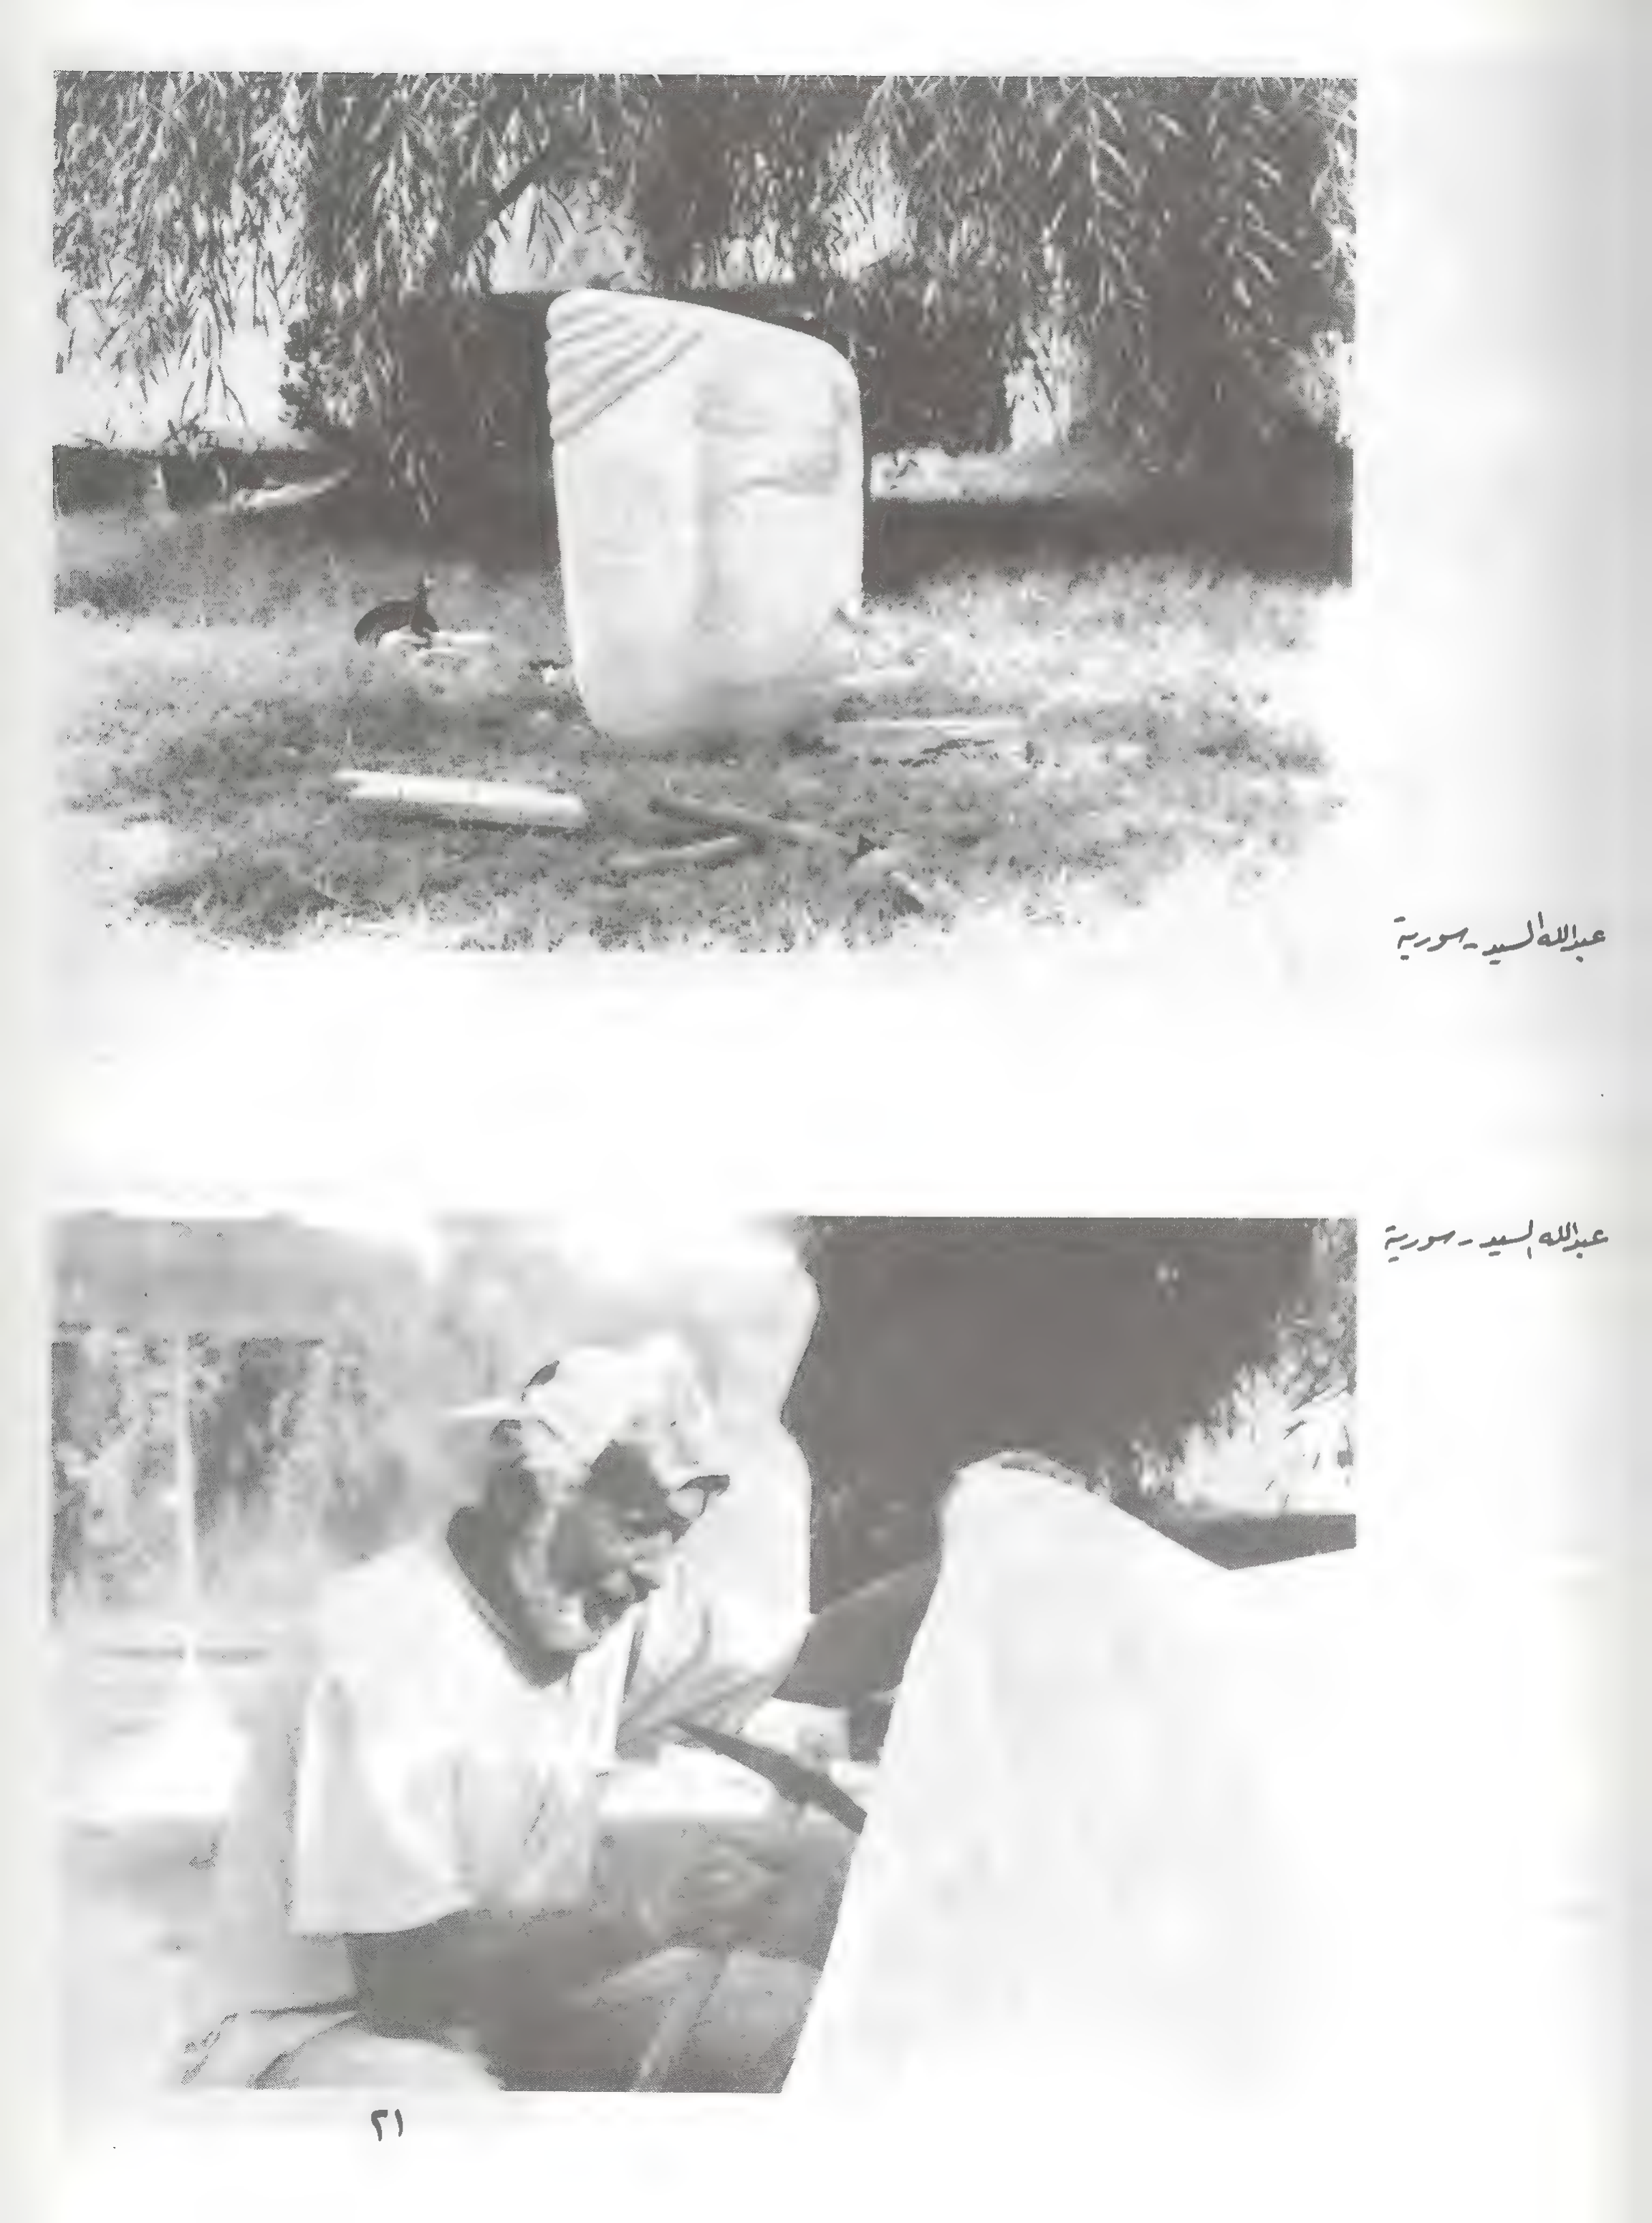 عبدالله السيد - سورية
عبدالله السيد - سورية
٢١